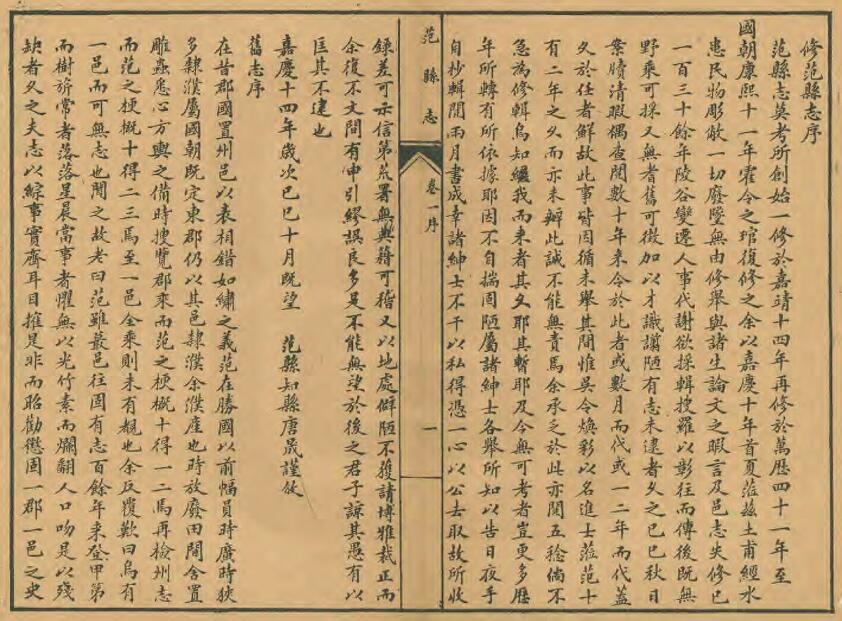 修范縣志序
范縣志莫考所創始一修於嘉靖十四年再修於萬歷四十一年至
國朝康熙十一年霍令之琯復修之余以嘉慶十年首夏蒞茲土甫經水
患民物彫敝一切廢墜無由修舉與諸生論文之暇言及邑志失修已
一百三十餘年陵谷變遷人事代謝欲採輯搜羅以彰往而傳後既無
野乘可採又無耆舊可徵加以才識謭陋有志未逮者久之己巳秋日
案牘清暇偶查閱數十年來令於此者或數月而代或一二年而代蓋
久於任者鮮故此事皆因循未舉其間惟吳令煥彩以名進士蒞范十
有二年之久而亦未辦此誠不能無責焉余承乏於此亦閱五稔倘不
急為修輯烏知繼我而来者其久耶其暫耶及今無可考者豈更多歷
年所轉有所依據耶因不自揣固陋屬諸紳士各舉所知以告日夜手
自抄輯閱兩月書成幸諸紳士不干以私得憑一心以公去取故所收
范縣志
卷一序
一
錄差可示信第荒署無典籍可稽又以地處僻陋不獲請博雅裁正而
余復不文間有申引繆誤良多是不能無望於後之君子諒其愚有以
匡其不逮也
嘉慶十四年歲次己巳十月既望 范縣知縣唐晟謹叙
舊志序
在昔郡國置州邑以表相錯如繡之義范在勝國以前幅員時廣時狹
多隸濮屬國朝既定東郡仍以其邑隸濮余濮產也時放廢田間舍置
雕蟲悉心方輿之備時搜覽郡乘而范之梗概十得一二焉再檢州志
而范之梗概十得二三焉至一邑全乘則未有覩也余反覆歎曰烏有
一邑而可無志也聞之故老曰范雖蕞邑往固有志百餘年来登甲第
而樹旂常者落落星晨當事者懼無以光竹素而爛翻人口吻是以殘
缺者久之夫志以綜事實齊耳目摧是非而昭勸懲固一郡一邑之史